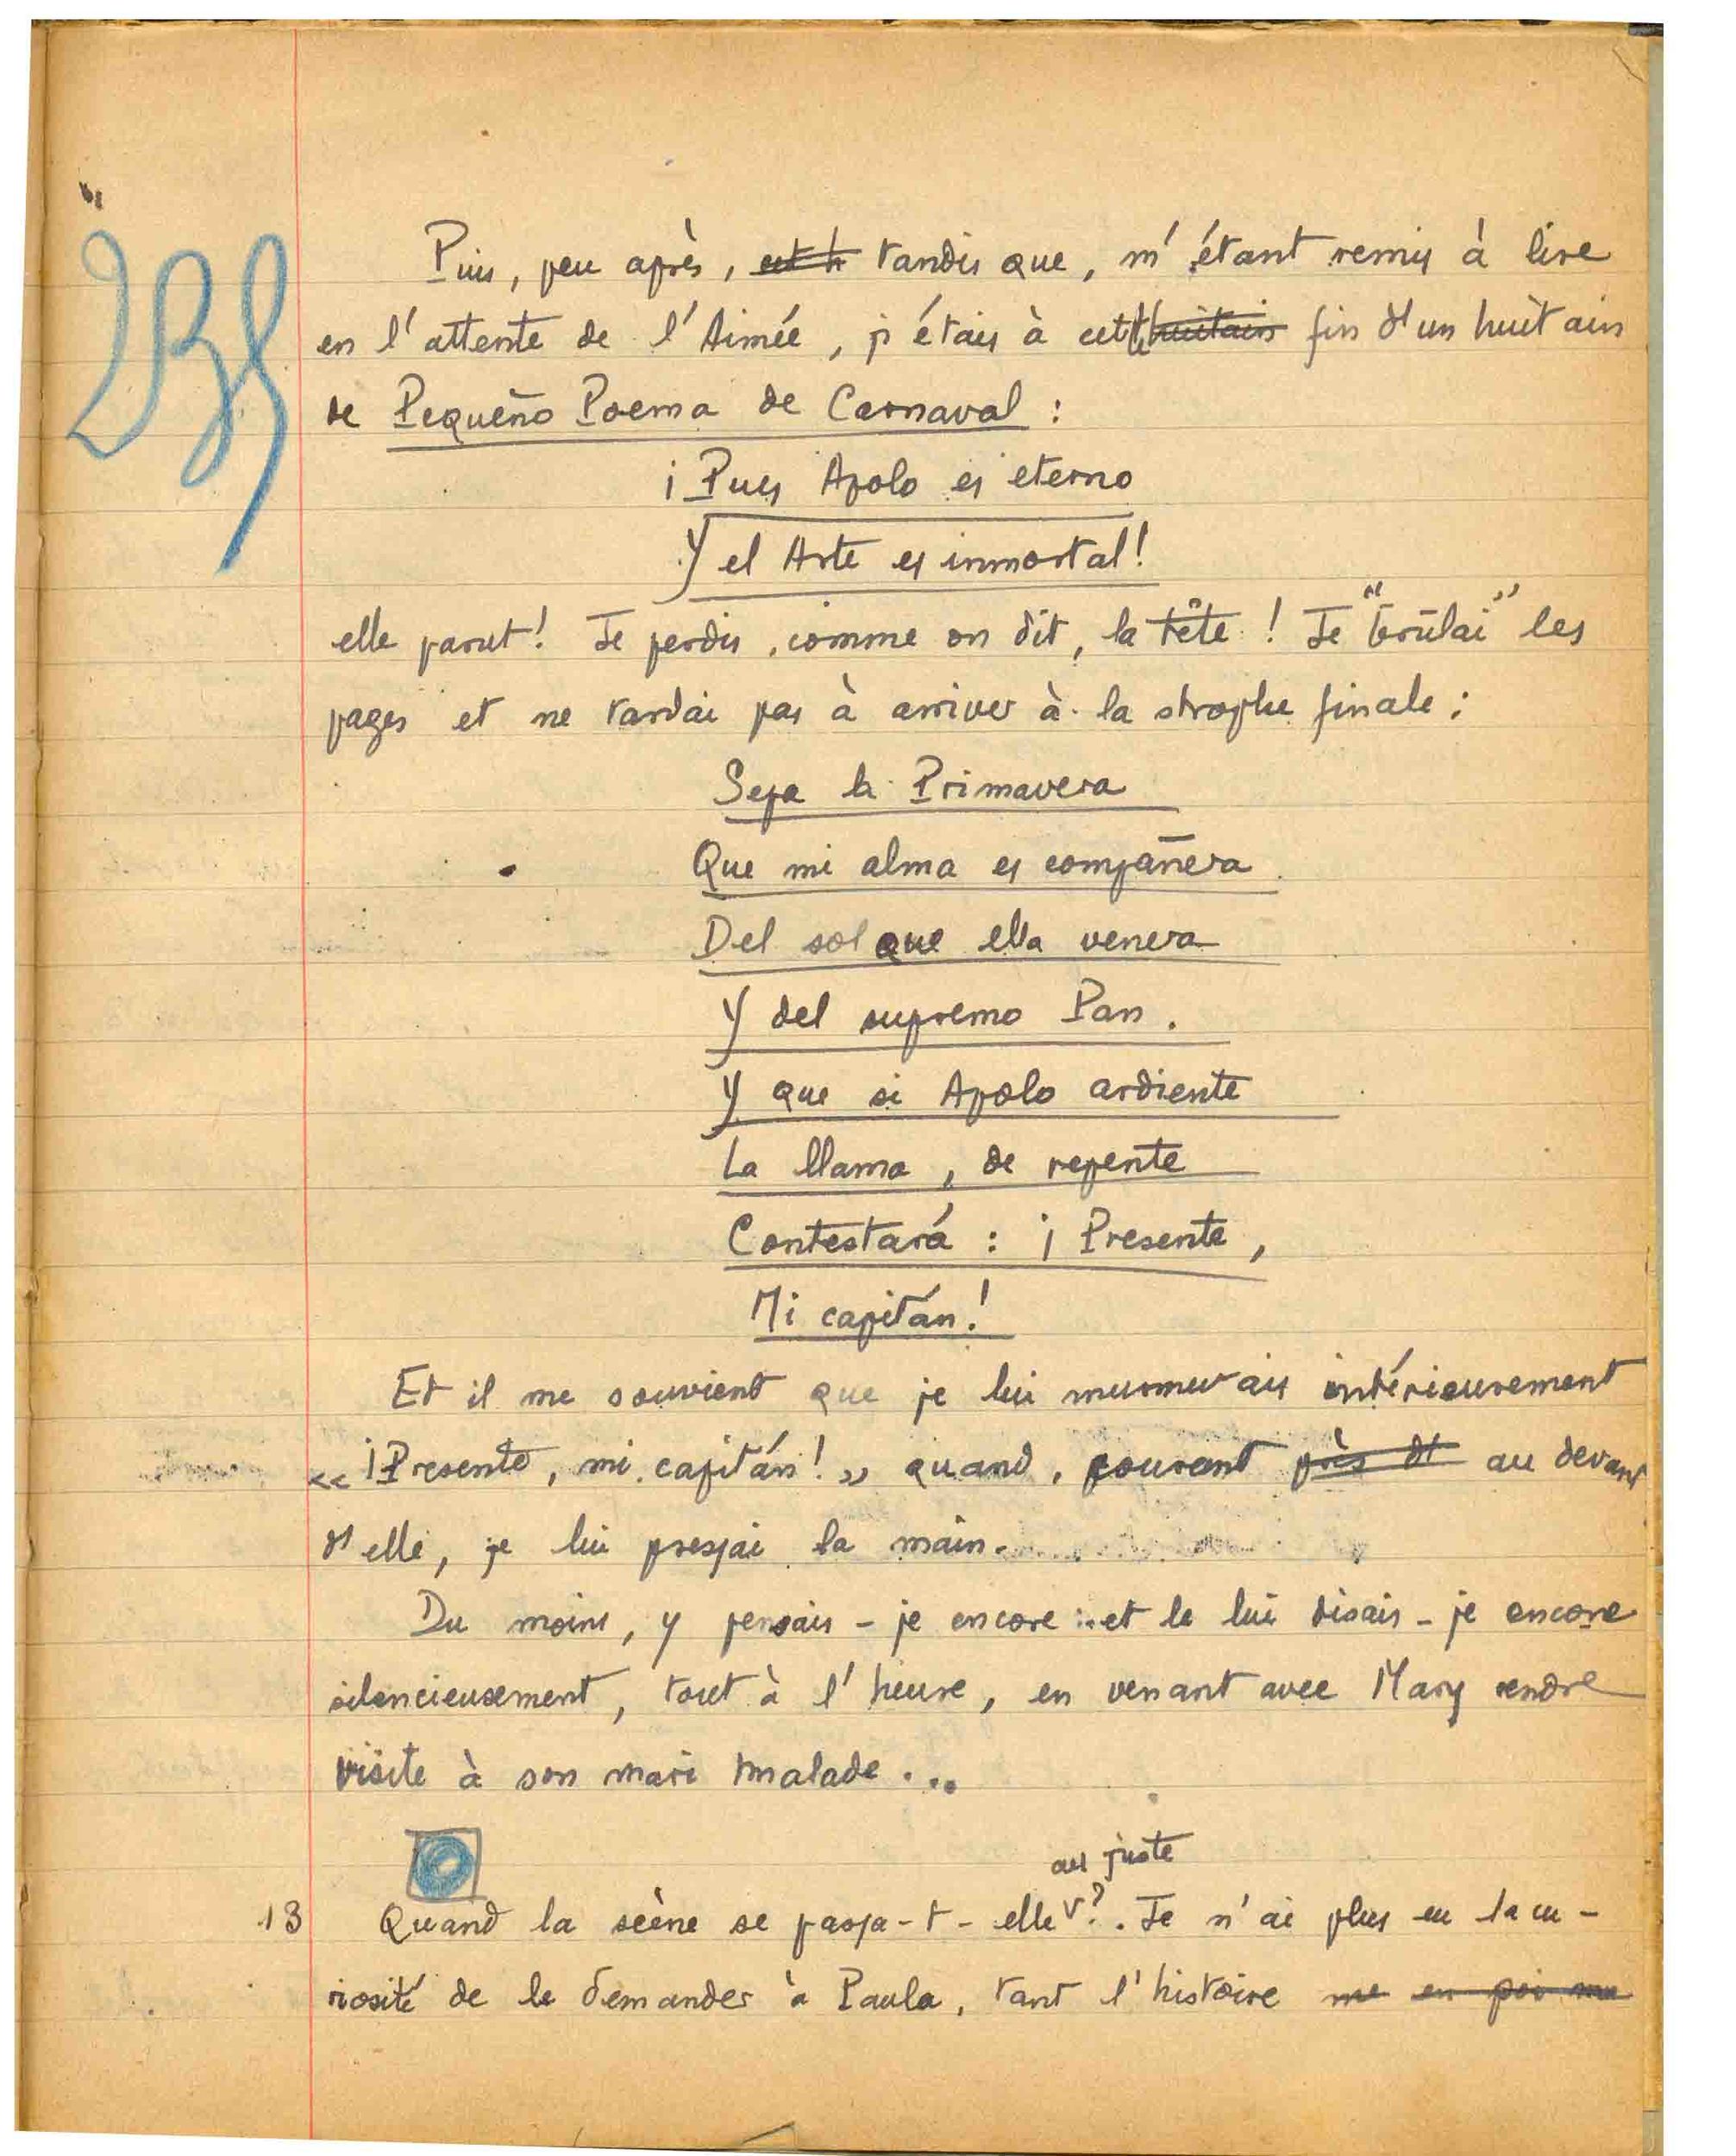 Puis, peu après, tandis que, m'étant remis à lire
en l'attente de l'Aimée, j'étais à cette huitain fin d'un huitain
de Pequeño Poema de Carnaval :
¡Pues Apolo es eterno
Y el Arte es inmortal!
elle parut! Je perdis, comme on dit, la tête! Je "brûlai" les
pages et ne tardai pas à arriver à la strophe finale :
Sepa la Primavera
Que mi alma es compañera
Del sol que ella venera
Y del supremo Pan.
Y que si Apolo ardiente
La llama, de repente
Contestará : ¡Presente,
Mi capitán!
Et il me souvient que je lui murmurais intérieurement
« ¡Presente, mi capitán! » quand, courant près d' au devant
d'elle, je lui pressai la main.
Du moins, y pensais-je encore et le lui disais-je encore
silencieusement, tout à l'heure, en venant avec Mary rendre
visite à son mari malade...
au juste
13 Quand la scène se passa-t-elle ?. Je n'ai plus eu la cu-
riosité de le demander à Paula, tant l'histoire me en